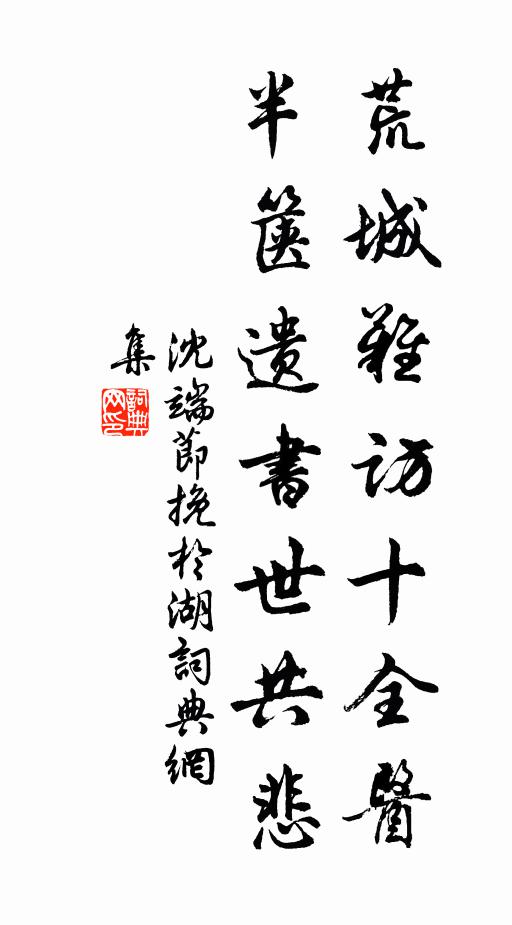 荒城難訪十全醫
半篋遺書世共悲
沈端節挽於湖詞典網
集
詞典網印